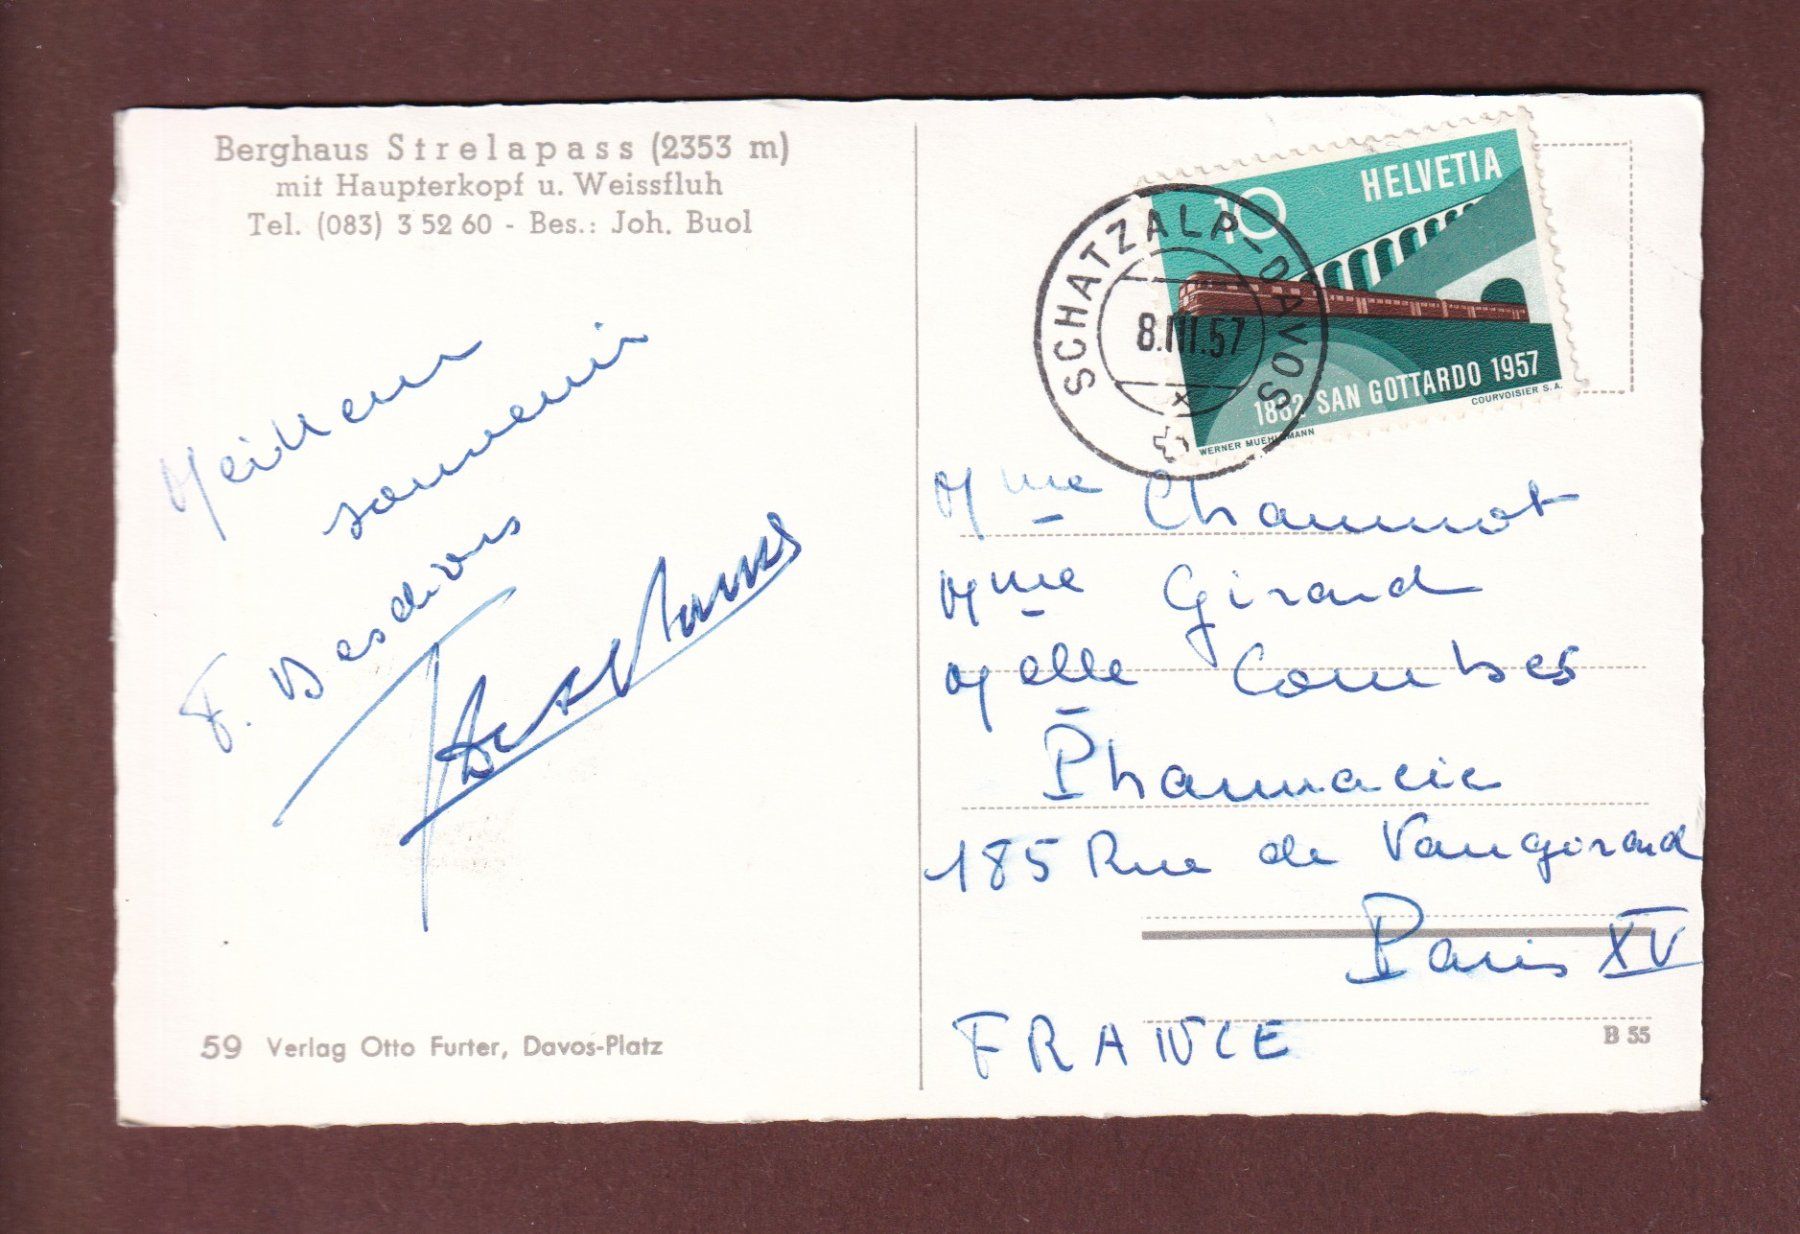 Berghaus Strelapass (2353 m)
mit Haupterkopf u. Weissfluh
Tel. (083) 3 52 60 - Bes.: Joh. Buol
Meilleur
souvenir
F. Desdions
59 Verlag Otto Furter, Davos-Platz
HELVETIA
10
1882 SAN GOTTARDO 1957
WERNER MUEHLEMANN
COURVOISIER S.A.
SCHATZALP-DAVOS
8.III.57
Mme Chaumot
Mme Girard
Melle Combes
Pharmacie
185 Rue de Vaugirard
Paris XV
FRANCE
B 55